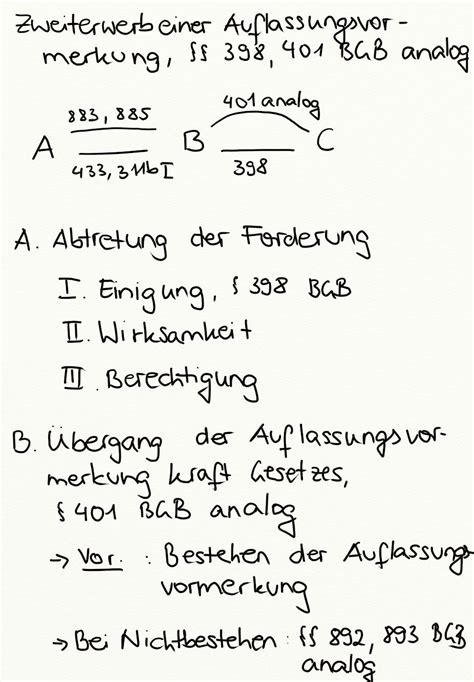 Zweiterwerb einer Auflassungsvor-
merkung, §§ 398, 401 BGB analog
883, 885
401 analog
A
B
C
433, 311b I
398
A. Abtretung der Forderung
I. Einigung, § 398 BGB
II. Wirksamkeit
III. Berechtigung
B. Übergang der Auflassungsvor-
merkung kraft Gesetzes,
§ 401 BGB analog
→ Vor. : Bestehen der Auflassungs
vormerkung
→ Bei Nichtbestehen: §§ 892, 893 BGB
analog